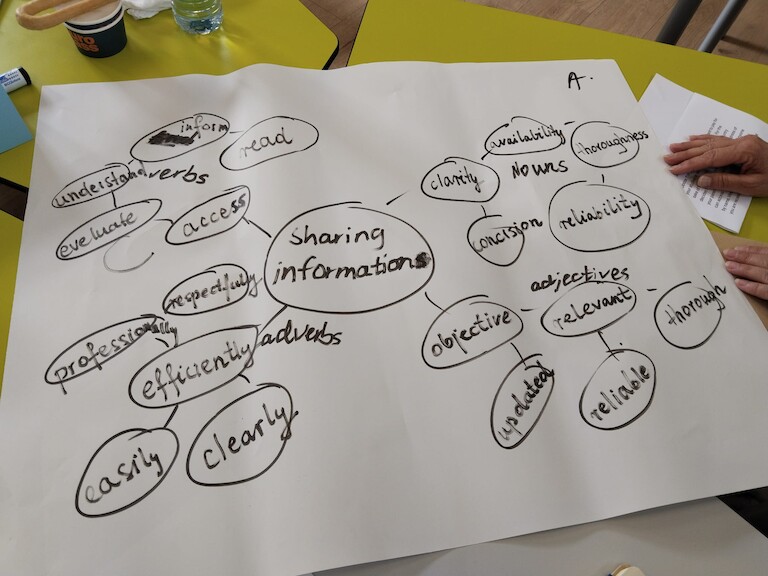 A.
inform
read
understand
verbs
evaluate
access
sharing
informations
clarity
availability
thoroughness
Nouns
concision
reliability
respectfully
professionally
efficiently
adverbs
easily
clearly
adjectives
objective
relevant
thorough
updated
reliable